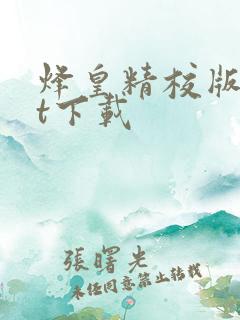 烽皇精校版
t下载
張曙光
未经同意禁止转载